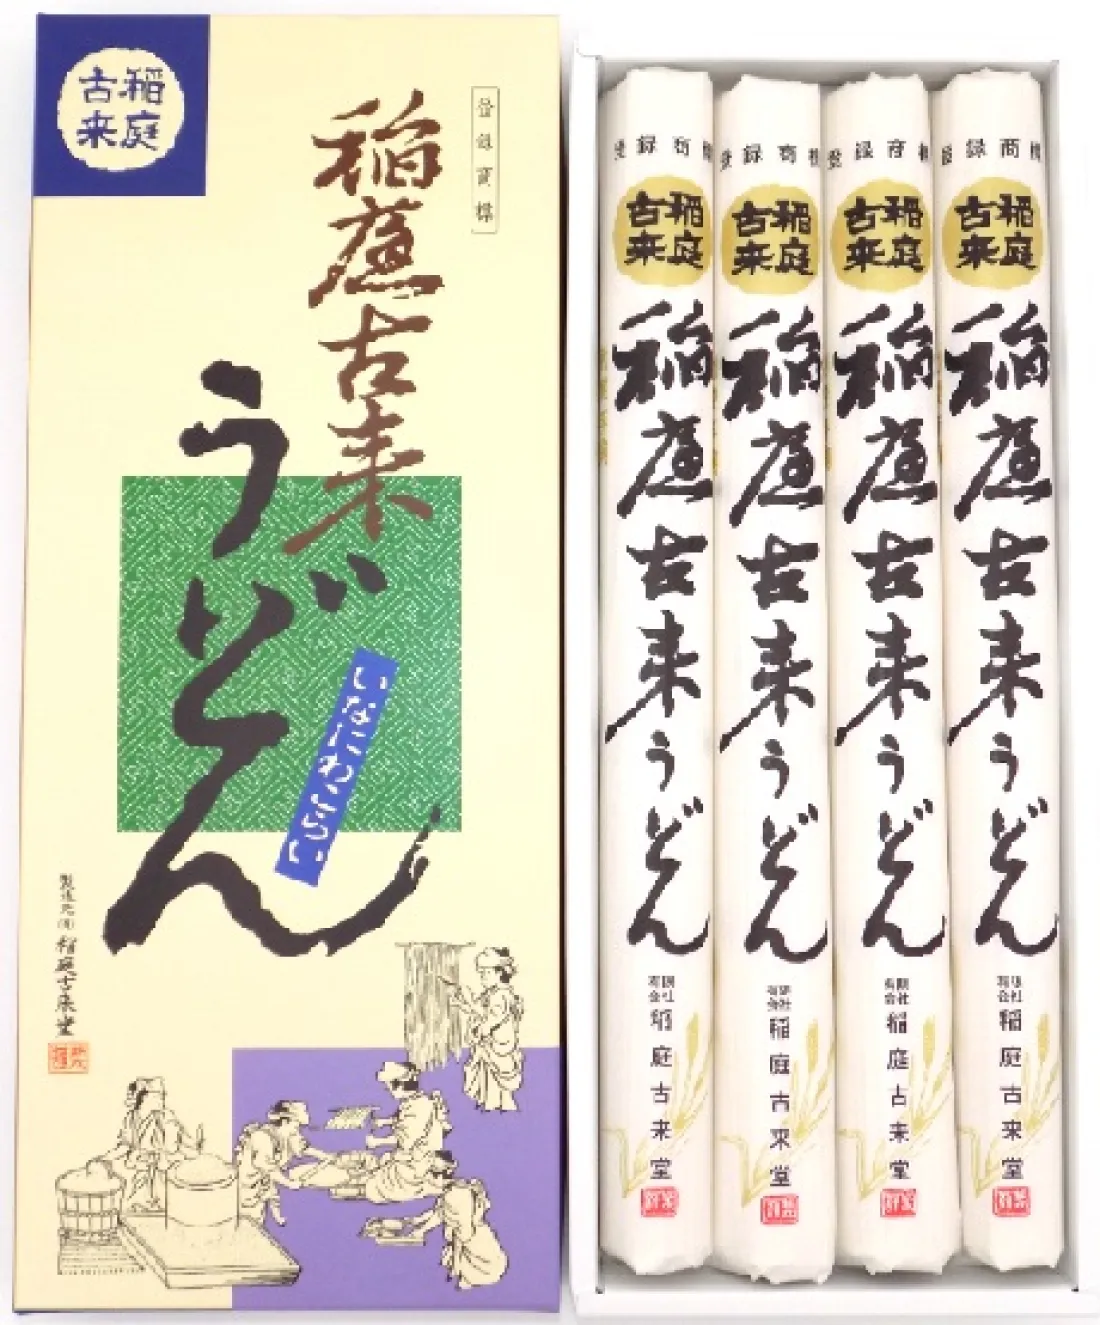 稲庭
古来
登録商標
稲庭古来
うどん
いなにわこらい
製造元(有)稲庭古来堂
登録商標
稲庭
古来
稲庭古来うどん
有限
会社
稲庭古来堂
登録商標
稲庭
古来
稲庭古来うどん
有限
会社
稲庭古来堂
登録商標
稲庭
古来
稲庭古来うどん
有限
会社
稲庭古来堂
登録商標
稲庭
古来
稲庭古来うどん
有限
会社
稲庭古来堂